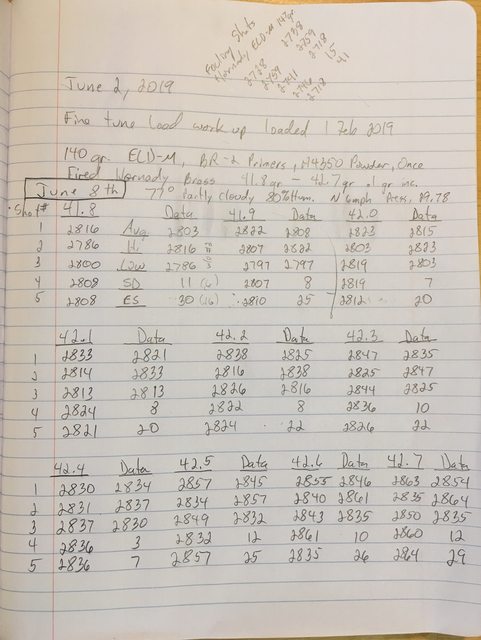 Fouling Shots
Hornady ELD-M 147gr
2738 2738
2759 2759
2741 2718
2746 15
2718 41
June 2, 2019
Fine tune load work up loaded 1 Feb 2019
140 gr. ELD-M, BR-2 Primers, H4350 Powder, Once
Fired Hornady Brass 41.8gr - 42.7gr .1 gr inc.
June 8th 77° Partly cloudy 80% Hum. N 6mph Pres. 29.78
Shot# 41.8 Data 41.9 Data 42.0 Data
1 2816 Avg 2803 2822 2808 2823 2815
2 2786 Hi 2816 2807 2822 2803 2823
3 2800 Low 2786 2797 2797 2819 2803
4 2808 SD 11 (6) 2807 8 2819 7
5 2808 ES 30 (16) 2810 25 2812 20
42.1 Data 42.2 Data 42.3 Data
1 2833 2821 2838 2825 2847 2835
2 2814 2833 2816 2838 2825 2847
3 2813 2813 2826 2816 2844 2825
4 2824 8 2822 8 2836 10
5 2821 20 2824 22 2826 22
42.4 Data 42.5 Data 42.6 Data 42.7 Data
1 2830 2834 2857 2845 2855 2846 2863 2854
2 2831 2837 2834 2857 2840 2861 2835 2864
3 2837 2830 2849 2832 2843 2835 2850 2835
4 2836 3 2832 12 2861 10 2860 12
5 2836 7 2857 25 2835 26 2864 29